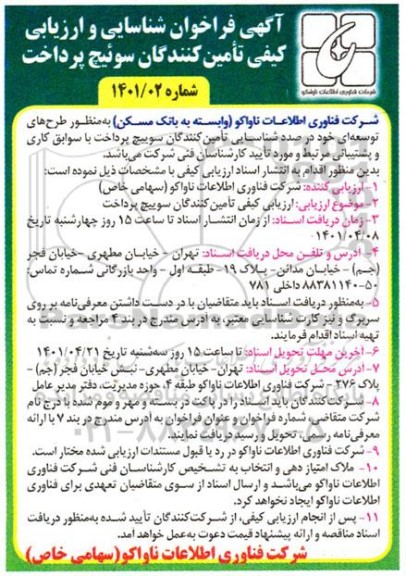 آگهی فراخوان شناسایی و ارزیابی
کیفی تأمین کنندگان سوئیچ پرداخت
شماره ۱۴۰۱/۰۲
شرکت فناوری اطلاعات ناواکو
شرکت فناوری اطلاعات ناواکو (وابسته به بانک مسکن) به‌منظور طرح‌های
توسعه‌ای خود در صدد شناسایی تأمین‌کنندگان سوییچ پرداخت با سوابق کاری
و پشتیبانی مرتبط و مورد تأیید کارشناسان فنی شرکت می‌باشد.
بدین منظور اقدام به انتشار اسناد ارزیابی کیفی با مشخصات ذیل نموده است:
۱- ارزیابی کننده: شرکت فناوری اطلاعات ناواکو (سهامی خاص)
۲- موضوع ارزیابی: ارزیابی کیفی تأمین کنندگان سوییچ پرداخت
۳- زمان دریافت اسناد: از زمان انتشار اسناد تا ساعت ۱۵ روز چهارشنبه تاریخ
۱۴۰۱/۰۴/۰۸
۴- آدرس و تلفن محل دریافت اسناد: تهران - خیابان مطهری - خیابان فجر
(جم) - خیابان مدائن - پلاک ۱۹- طبقه اول - واحد بازرگانی شماره تماس:
۵۰-۸۸۳۸۱۱۴۰ داخلی ۷۸۱
۵- به‌منظور دریافت اسناد باید متقاضیان با در دست داشتن معرفی‌نامه بر روی
سربرگ و نیز کارت شناسایی معتبر، به آدرس مندرج در بند ۴ مراجعه و نسبت به
تهیه اسناد اقدام فرمایند.
۶- آخرین مهلت تحویل اسناد: تا ساعت ۱۵ روز سه‌شنبه تاریخ ۱۴۰۱/۰۴/۲۱
۷- آدرس محل تحویل اسناد: تهران- خیابان مطهری- نبش خیابان فجر (جم) -
پلاک ۲۷۶ - شرکت فناوری اطلاعات ناواکو طبقه ۴، حوزه مدیریت، دفتر مدیر عامل
۸- شرکت‌کنندگان باید اسناد را در پاکت در بسته و مهر و موم شده با درج نام
شرکت متقاضی، شماره فراخوان و عنوان فراخوان به آدرس مندرج در بند ۷ با ارائه
معرفی‌نامه رسمی، تحویل و رسید دریافت نمایند.
۹- شرکت فناوری اطلاعات ناواکو در رد یا قبول مستندات ارزیابی شده مختار است.
۱۰- ملاک امتیاز دهی و انتخاب به تشخیص کارشناسان فنی شرکت فناوری
اطلاعات ناواکو می‌باشد و ارسال اسناد از سوی متقاضیان تعهدی برای فناوری
اطلاعات ناواکو ایجاد نخواهد کرد.
۱۱- پس از انجام ارزیابی کیفی، از شرکت‌کنندگان تأیید شده به‌منظور دریافت
اسناد مناقصه و ارائه پیشنهاد قیمت دعوت به‌عمل خواهد آمد.
شرکت فناوری اطلاعات ناواکو (سهامی خاص)